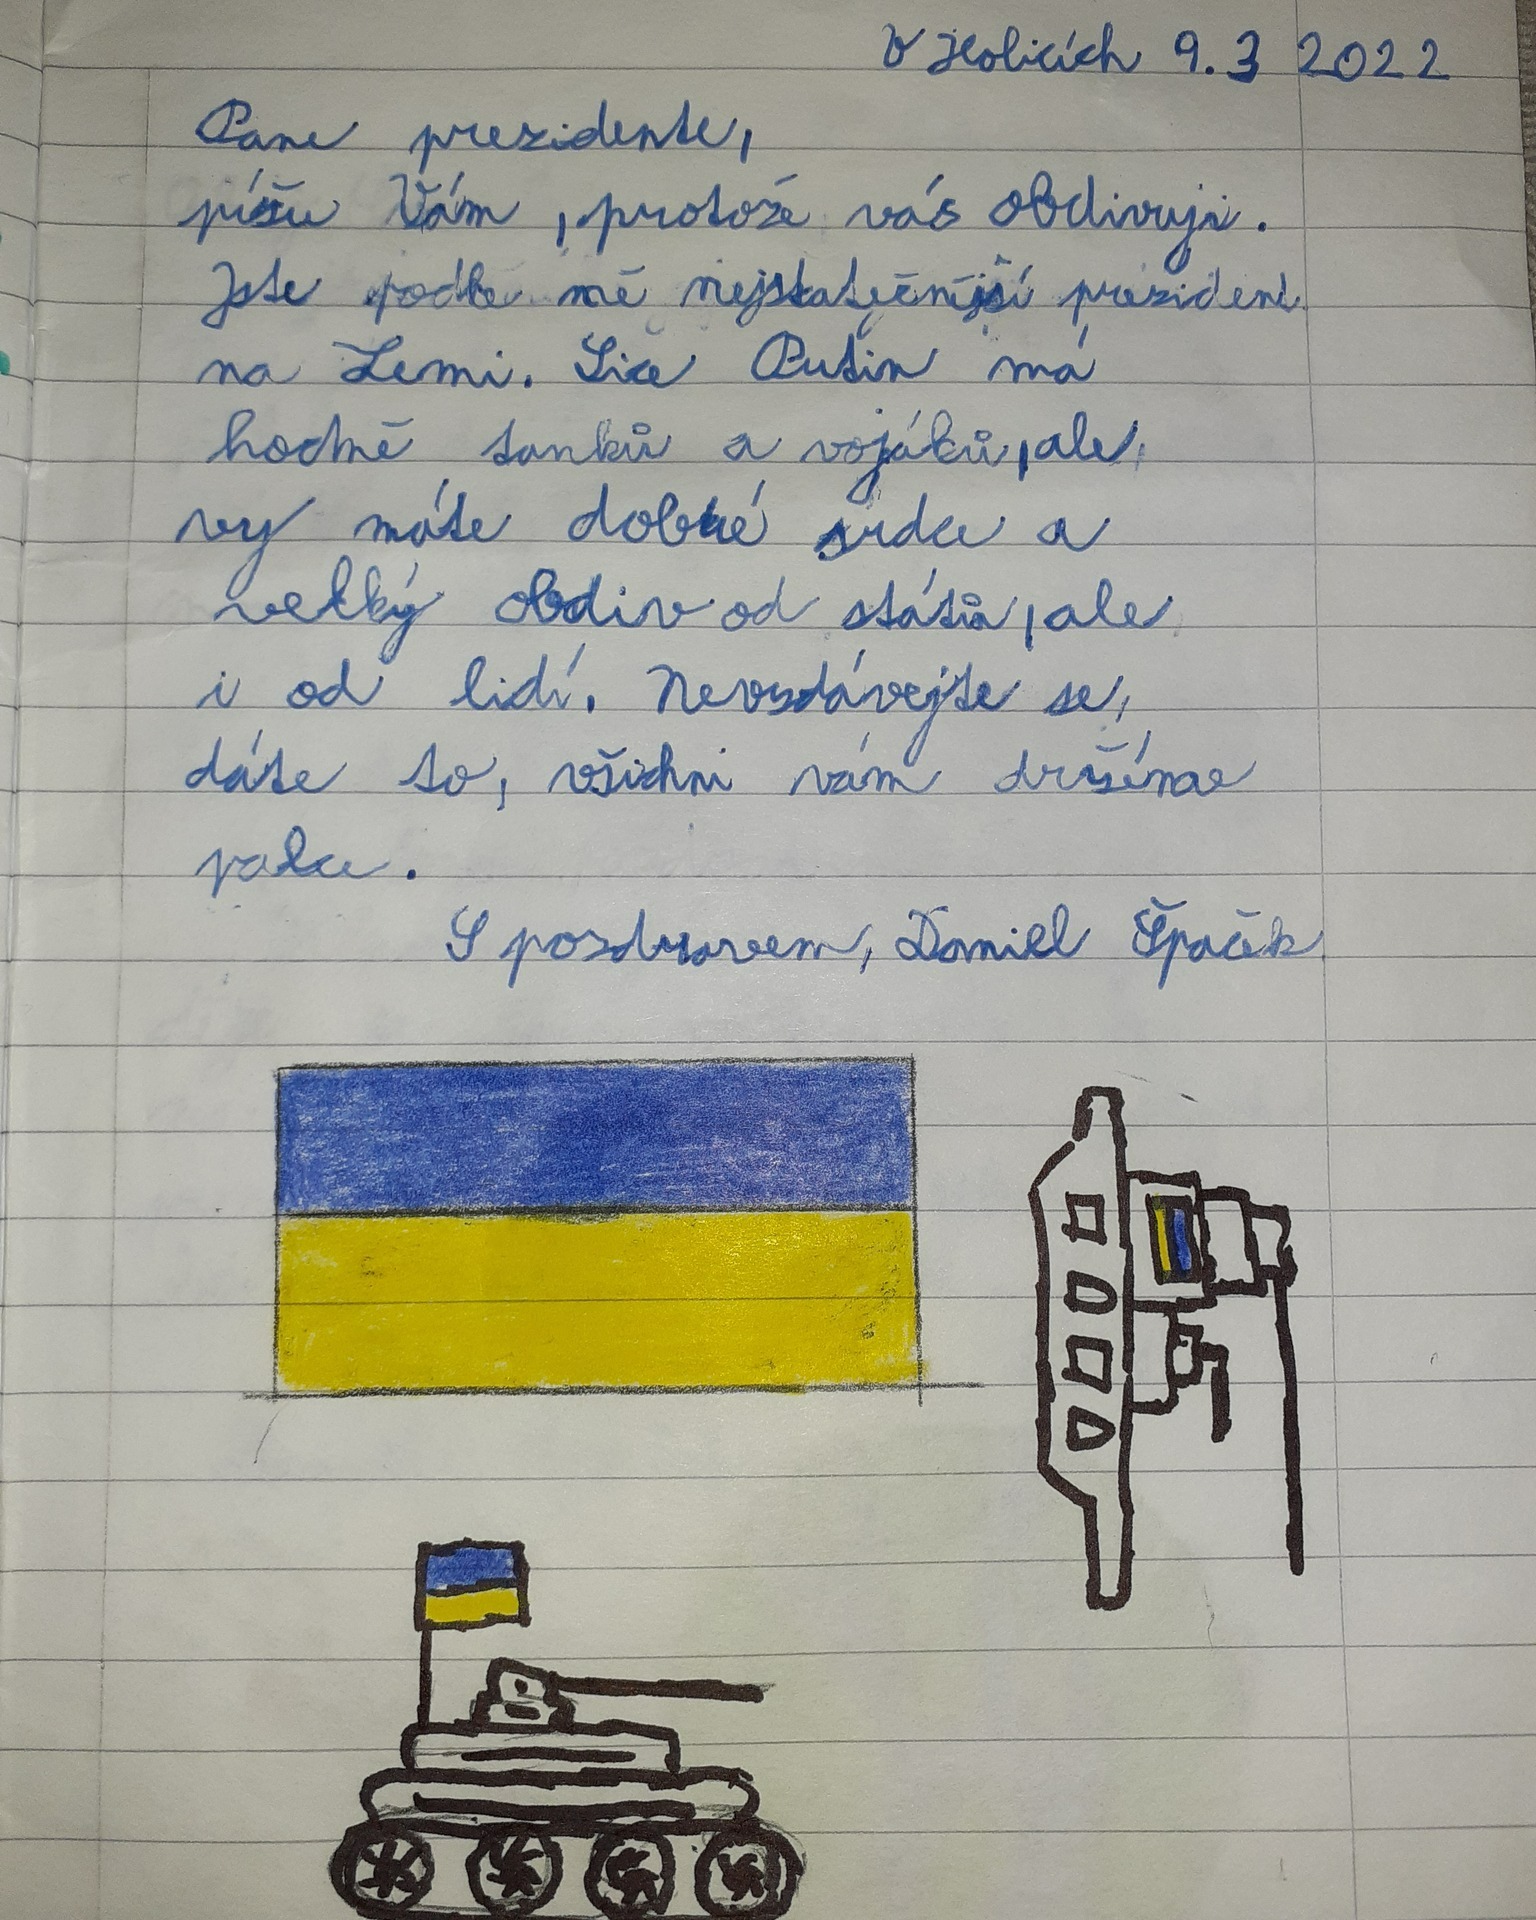 V Holicích 9.3 2022
Pane prezidente,
píšu Vám, protože vás obdivuji.
Jste podle mě nejstatečnější prezident
na Zemi. Sice Putin má
hodně tanků a vojáků, ale,
vy máte dobré srdce a
velký obdiv od států, ale
i od lidí. Nevzdávejte se,
dáte to, všichni vám držéme
palce.
S pozdravem, Daniel Špaček